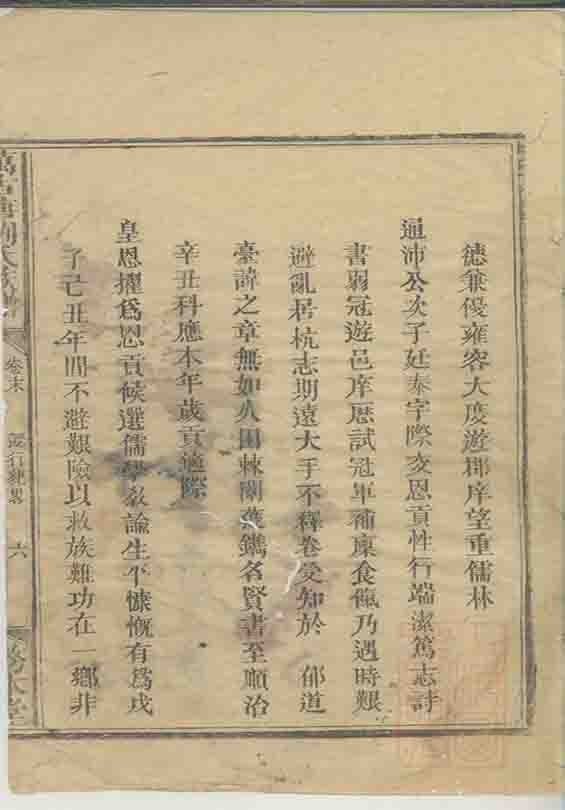 德兼優雍容大度遊郡庠望重儒林
通沛公次子廷泰字際交恩貢性行端潔篤志詩
書弱冠遊邑庠歷試冠軍補廩食餼乃遇時艱
避亂居杭志期遠大手不釋卷受知於 郁道
臺諱之章無如八困棘闈薦鐫名賢書至順治
辛丑科應本年歲貢適際
皇恩擢爲恩貢候選儒學敎諭生平慷慨有爲戊
子己丑年間不避艱險以救族難功在一鄉非
劉氏族譜
卷末
行
六
堂